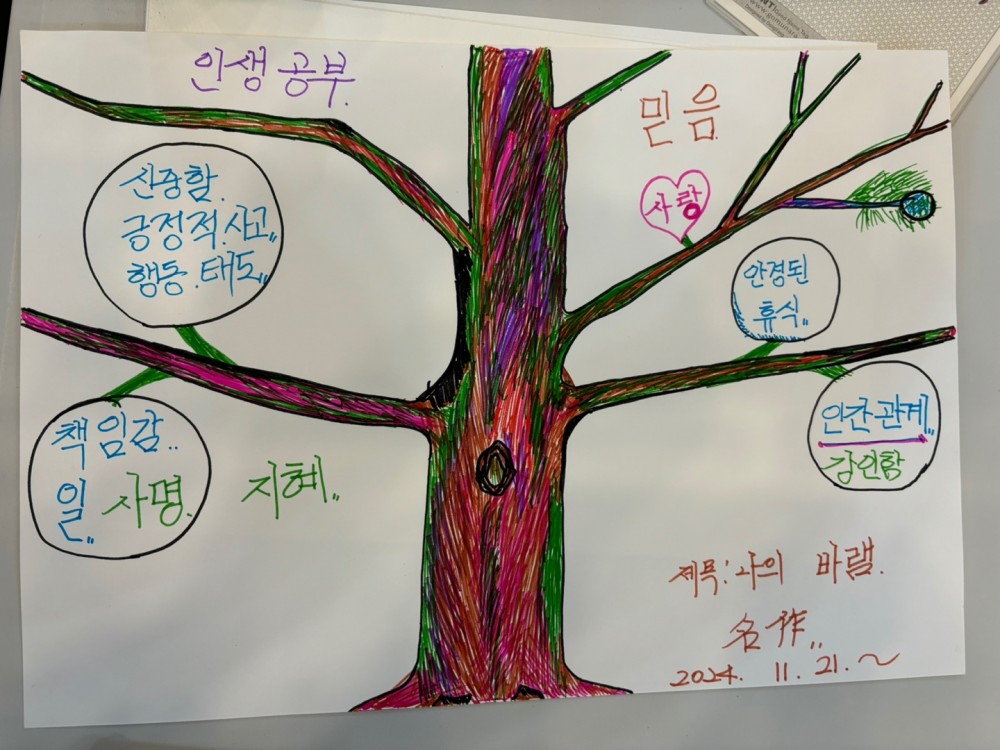 인생 공부.
믿음
신중함.
긍정적.사고,,
행동.태도,,
사랑
안경된
휴식,,
책임감..
일,, 사명.
지혜,,
인간관계,,
강인함
제목: 나의 바램.
名作,,
2024. 11. 21.~